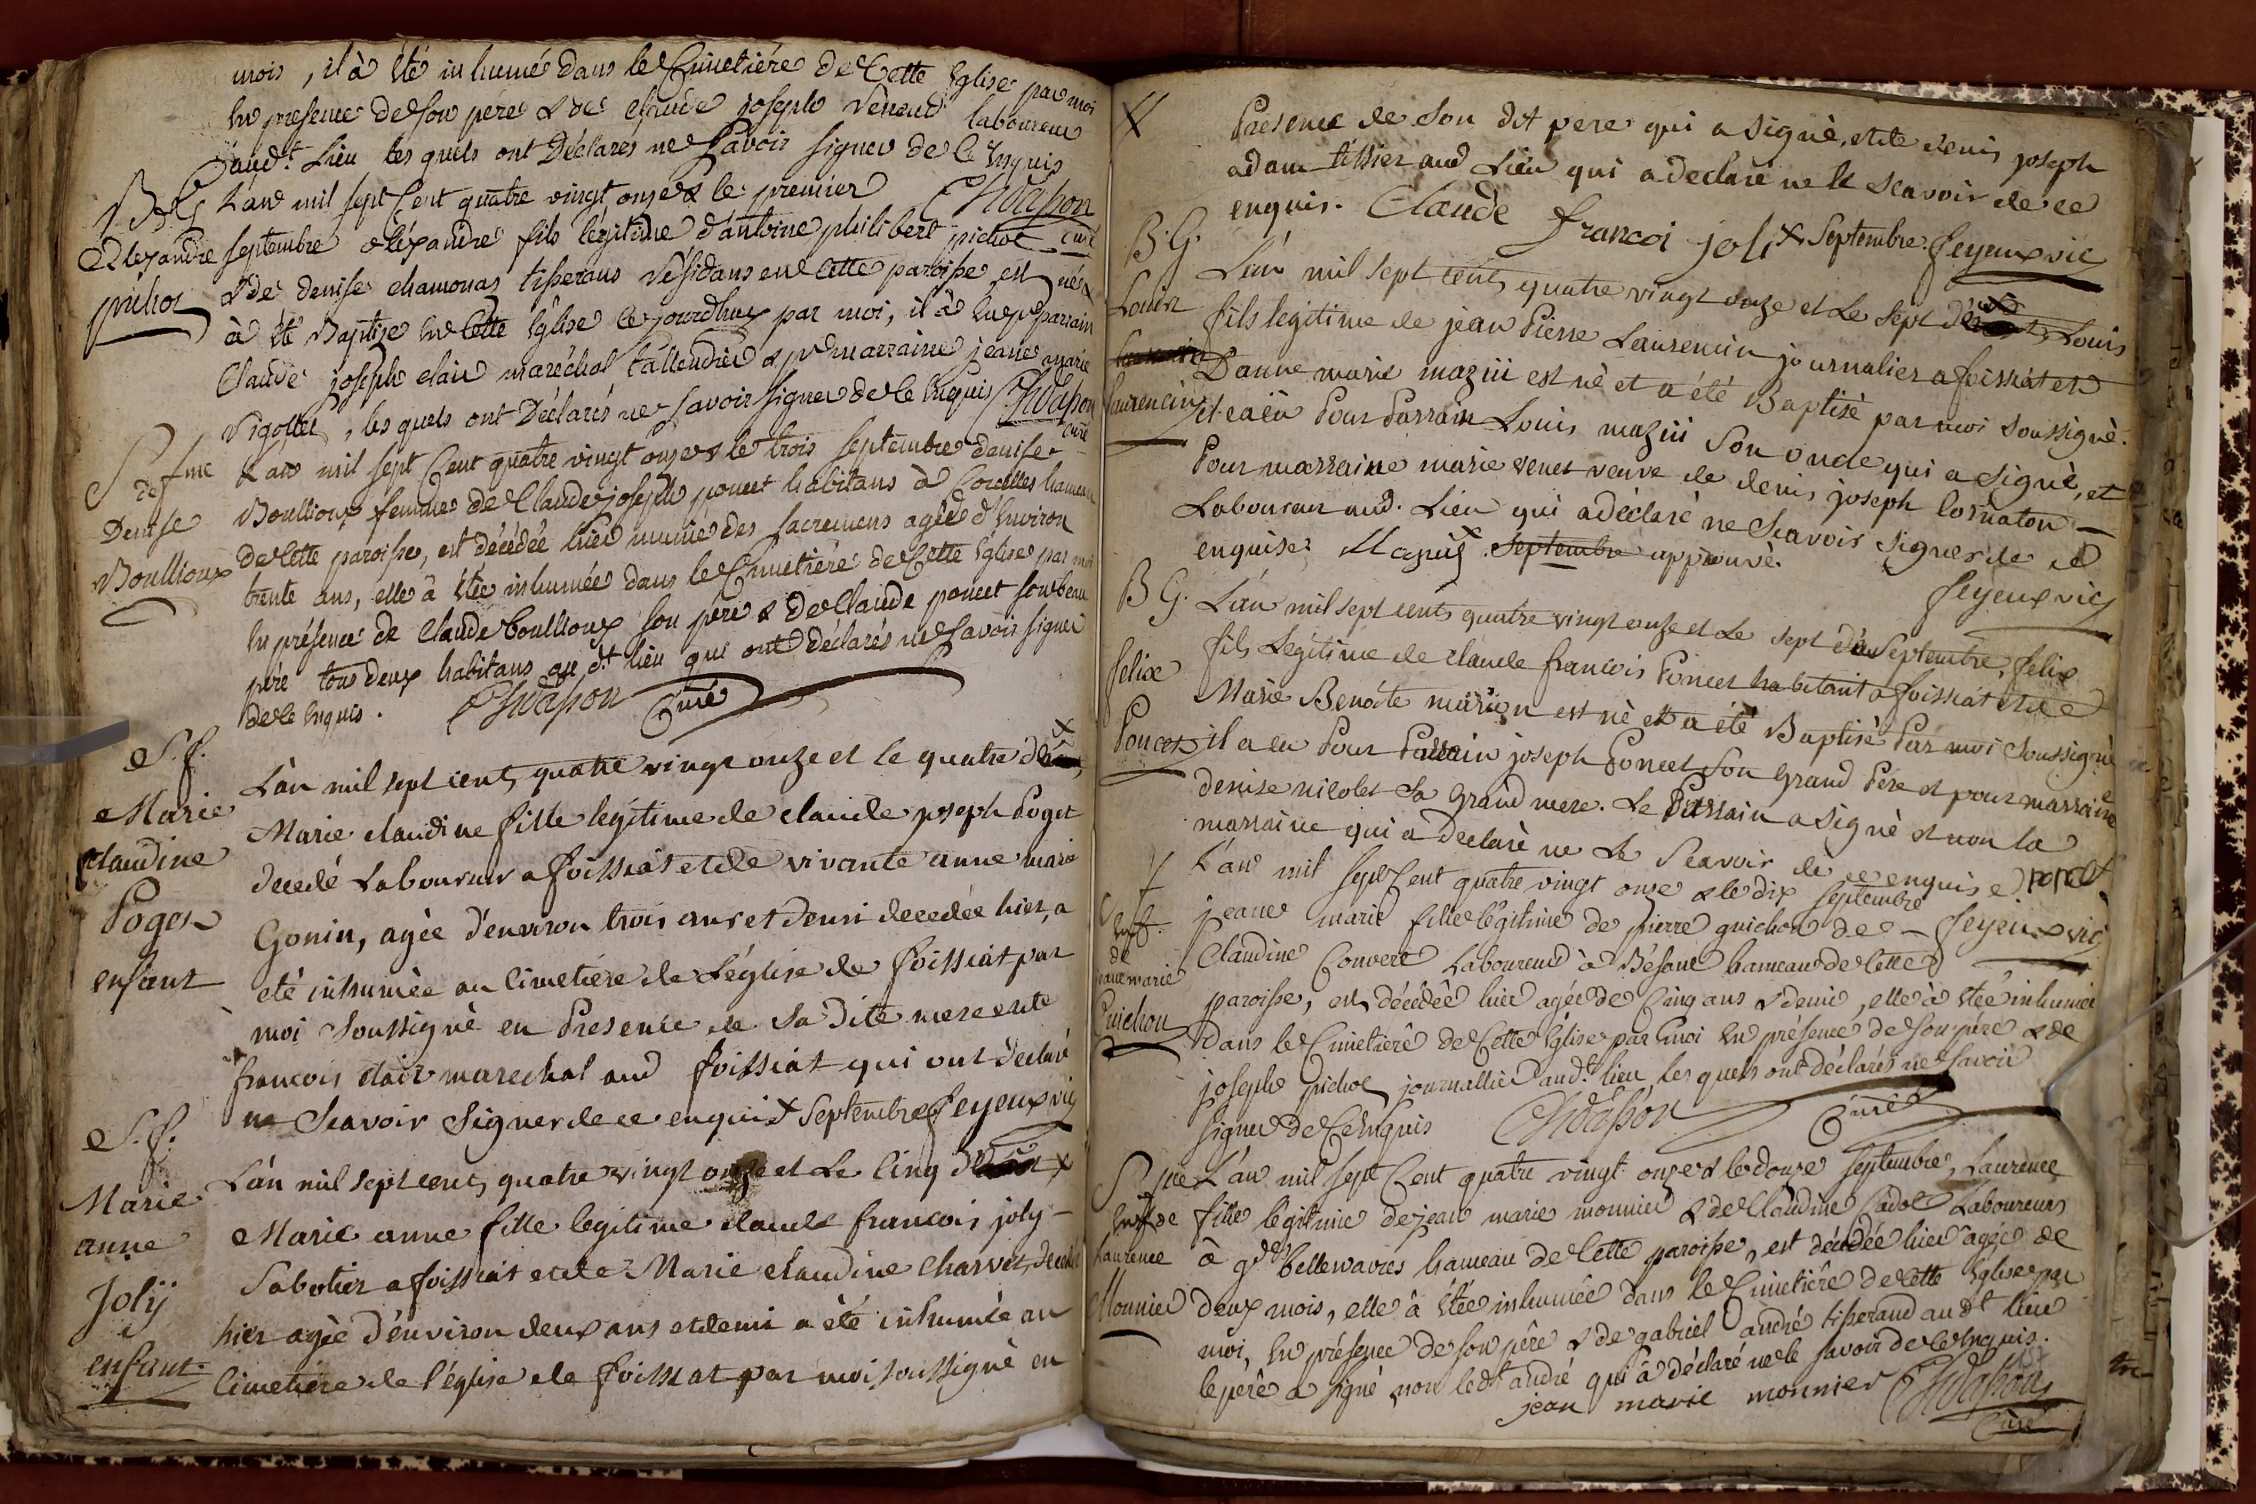 mois, il à été inhumé dans le Cimetiére de Cette Eglise par moi
En presence de son pére & de Claude joseph Venoud laboureur
aud.t Lieu les quels ont Déclarés ne Savoir signer de Ce Enquis
Chdasson
Curé
B G
Alexandre
pichoz
L'an mil sept Cent quatre vingt onze & le premier
septembre aléxandre fils légitime d'antoine philibert pichoz
& de denise chamonas tisserans résidans en Cette paroisse est né &
à été Baptize En Cette Eglise Ce jourdhuy par moi, il à Eu pr parrain
Claude joseph clair maréchal taillendier & pr marraine jeanne marie
Vigollet, les quels ont Déclarés ne Savoir signer de le Enquis Chdasson
curé
S fme
de
Denise
Boullioux
L'an mil sept Cent quatre vingt onze & le trois septembre denise
Boullioux femme de Claude joseph poncet habitans à Corcelles hameau
de Cette paroisse, est décédée hier munie des sacremens agée d'Environ
trente ans, elle à étée inhumée dans le Cimetiére de Cette Eglise par moi
En présence de Claude boullioux son pére & de Claude poncet son beau
pére tous deux habitans au dt lieu qui ont Déclarés ne Savoir signer
de le Enquis. Chdasson Curé
S. f.
Marie
Claudine
Poget
enfant
L'an mil sept cent quatre vingt onze et le quatre d x
Marie claudine fille legitime de claude joseph Poget
decedé Laboureur a foissiat et de vivante anne marie
Gonin, agée d'environ trois ans et demi decedée hier, a
eté inhumée au Cimetiére de L'église de foissiat par
moi Soussigné en Presence de Sa dite mere et de
francois clair marechal aud foissiat qui ont declaré
ne Scavoir Signer de ce enquis x Septembre feyeux vic
S. f.
Marie
anne
Jolÿ
enfant
L'an mil sept cent quatre vingt onze et Le Cinq x
Marie anne fille legitime claude francois joly
Sabotier a foissiat et de Marie claudine Charvet, decedée
hier agée d'environ deux ans et demi a èté inhumée au
Cimetiere de l'église de foissiat par moi soussigné en
Presence de Son dit pere qui a signè, et de denis joseph
adam tissier aud Lieu qui a declaré ne le scavoir de ce
enquis. Claude francoi joli x Septembre. feyeux vic
B. G.
Louis
Laurencin
L'an mil sept cent quatre vingt onze et Le Sept Louis
fils legitime de jean Pierre Laurencin journalier a foissiat et
D'anne marie maziü est nè et a été Baptisè par moi soussigné.
il a eu Pour Parrain Louis maziü Son oncle qui a signè, et
Pour marraine marie venet veuve de denis joseph Cornaton
Laboureur aud. Lieu qui a déclaré ne Scavoir signer de ce
enquise. Maziü x. Septembre approuvè.
feyeux vic
B G.
felix
Poncet
L'an mil sept cent quatre vingt onze et Le sept Septembre, felix
fils Legitime de claude francois Poncet habitant a foissiat et de
Marie Benoite marion est nè et a été Baptisè Par moi Soussigné
il a eu Pour Parrain joseph Poncet Son Grand Père et pour marraine
denise nicolet Sa Grand mere. Le Parrain a signè et non la
marraine qui a declaré ne Le Scavoir de ce enquise
feyeux vic
S
Enft.
de
jeanne marie
Guichon
L'an mil sept Cent quatre vingt onze & le dix septembre
jeanne marie fille légitime de pierre guichon & de
Claudine Convert Laboureur à Béfant hameau de Cette
paroisse, est décédée hier agée de Cinq ans & demie, elle à étée inhumée
dans le Cimetiére de Cette Eglise par moi En présence de son pére & de
joseph pichoz journallier aud.t lieu, les quels ont déclarés ne savoir
signer de Ce Enquis Chdasson Curé
Enft de
Laurence
Monnier
L'an mil sept Cent quatre vingt onze & le douze septembre, Laurence
fille légitime de jean marie monnier & de Claudine Cadoz Laboureurs
à gde bellevavres hameau de Cette paroisse, est décédée hier âgée de
deux mois, elle à étée inhumée dans le Cimetiére de Cette Eglise par
moi, En présence de son pére & de gabriel andré tisserand au dt lieu
le pére a signé non ledt andré qui à déclaré ne le savoir de Ce Enquis.
jean marie monnier Chdasson
Curé